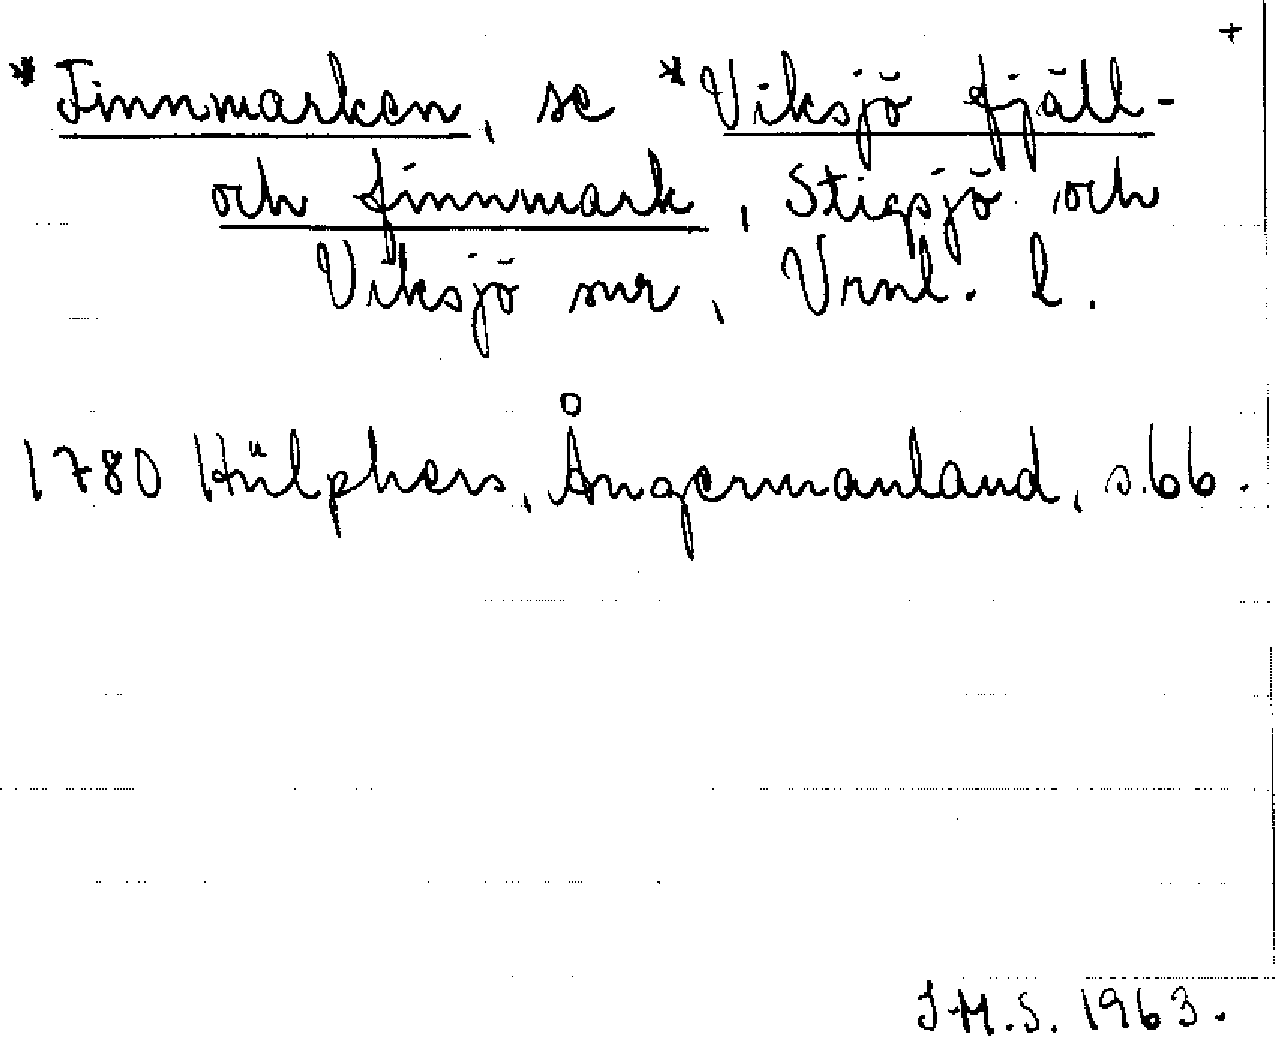 +
* Finnmarken, se * Viksjö fjäll-
och finnmark, Stigsjö och
Viksjö snr, Vrnl. l.
1780 Hülphers, Ångermanland, s. 66.
J.M.S. 1963.